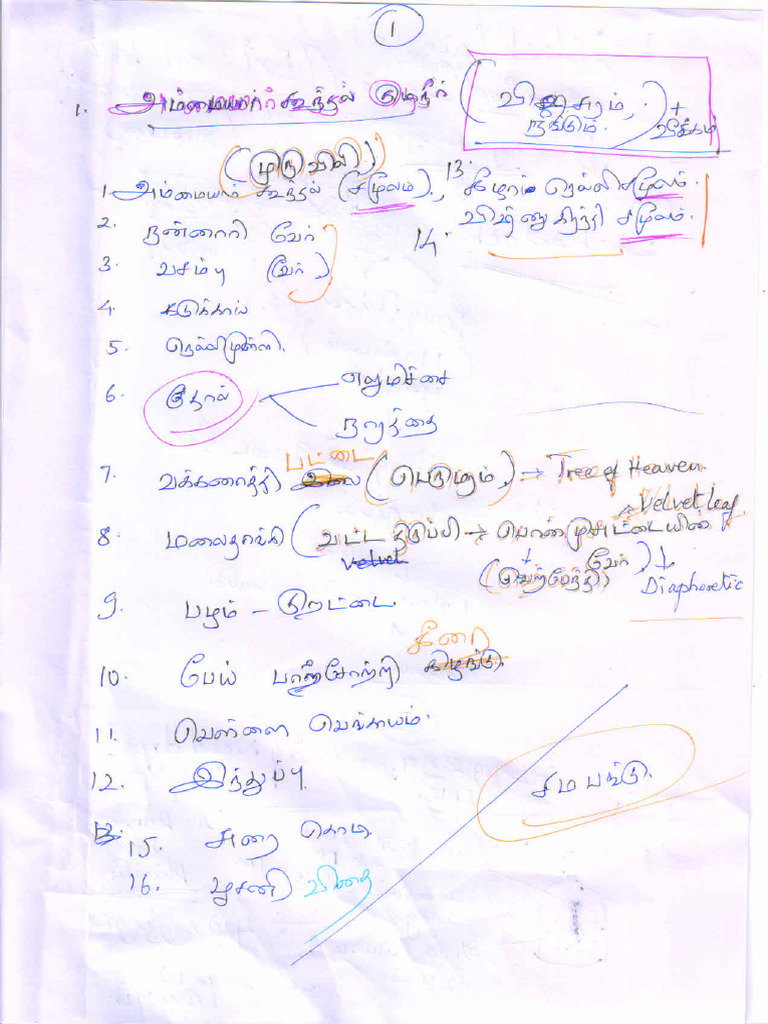 1
1. அம்மையார் கூந்தல் குடிநீர் (விஷ சுரம், நீங்கும்.) + வீக்கம்
(முருவிலி)
1. அம்மையார் கூந்தல் (சமூலம்).,
2. நன்னாரி வேர்
3. வசம்பு (வேர்)
4. கடுக்காய்
5. நெல்லிமுள்ளி.
6 தோல் எலுமிச்சை
நாரத்தை
7. வக்கணாத்தி பட்டை (பெருமரம்,) → Tree of Heaven.
8. மலைதாங்கி (வட்ட திருப்பி → பொன்முசுட்டையின் → Velvet leaf
வேர்) ↓ Diaphoretic
9. பழம் - இரட்டை.
10. பேய் பாற்சோற்றி கீரை
11. வெள்ளை வெங்காயம்.
12. இந்துப்பு
13. கீழாம் நெல்லி சமூலம்.
14. விஷ்ணுகிரந்தி சமூலம்.
15. அரை கொம
16. பூசனி விதை
சம பங்கு.